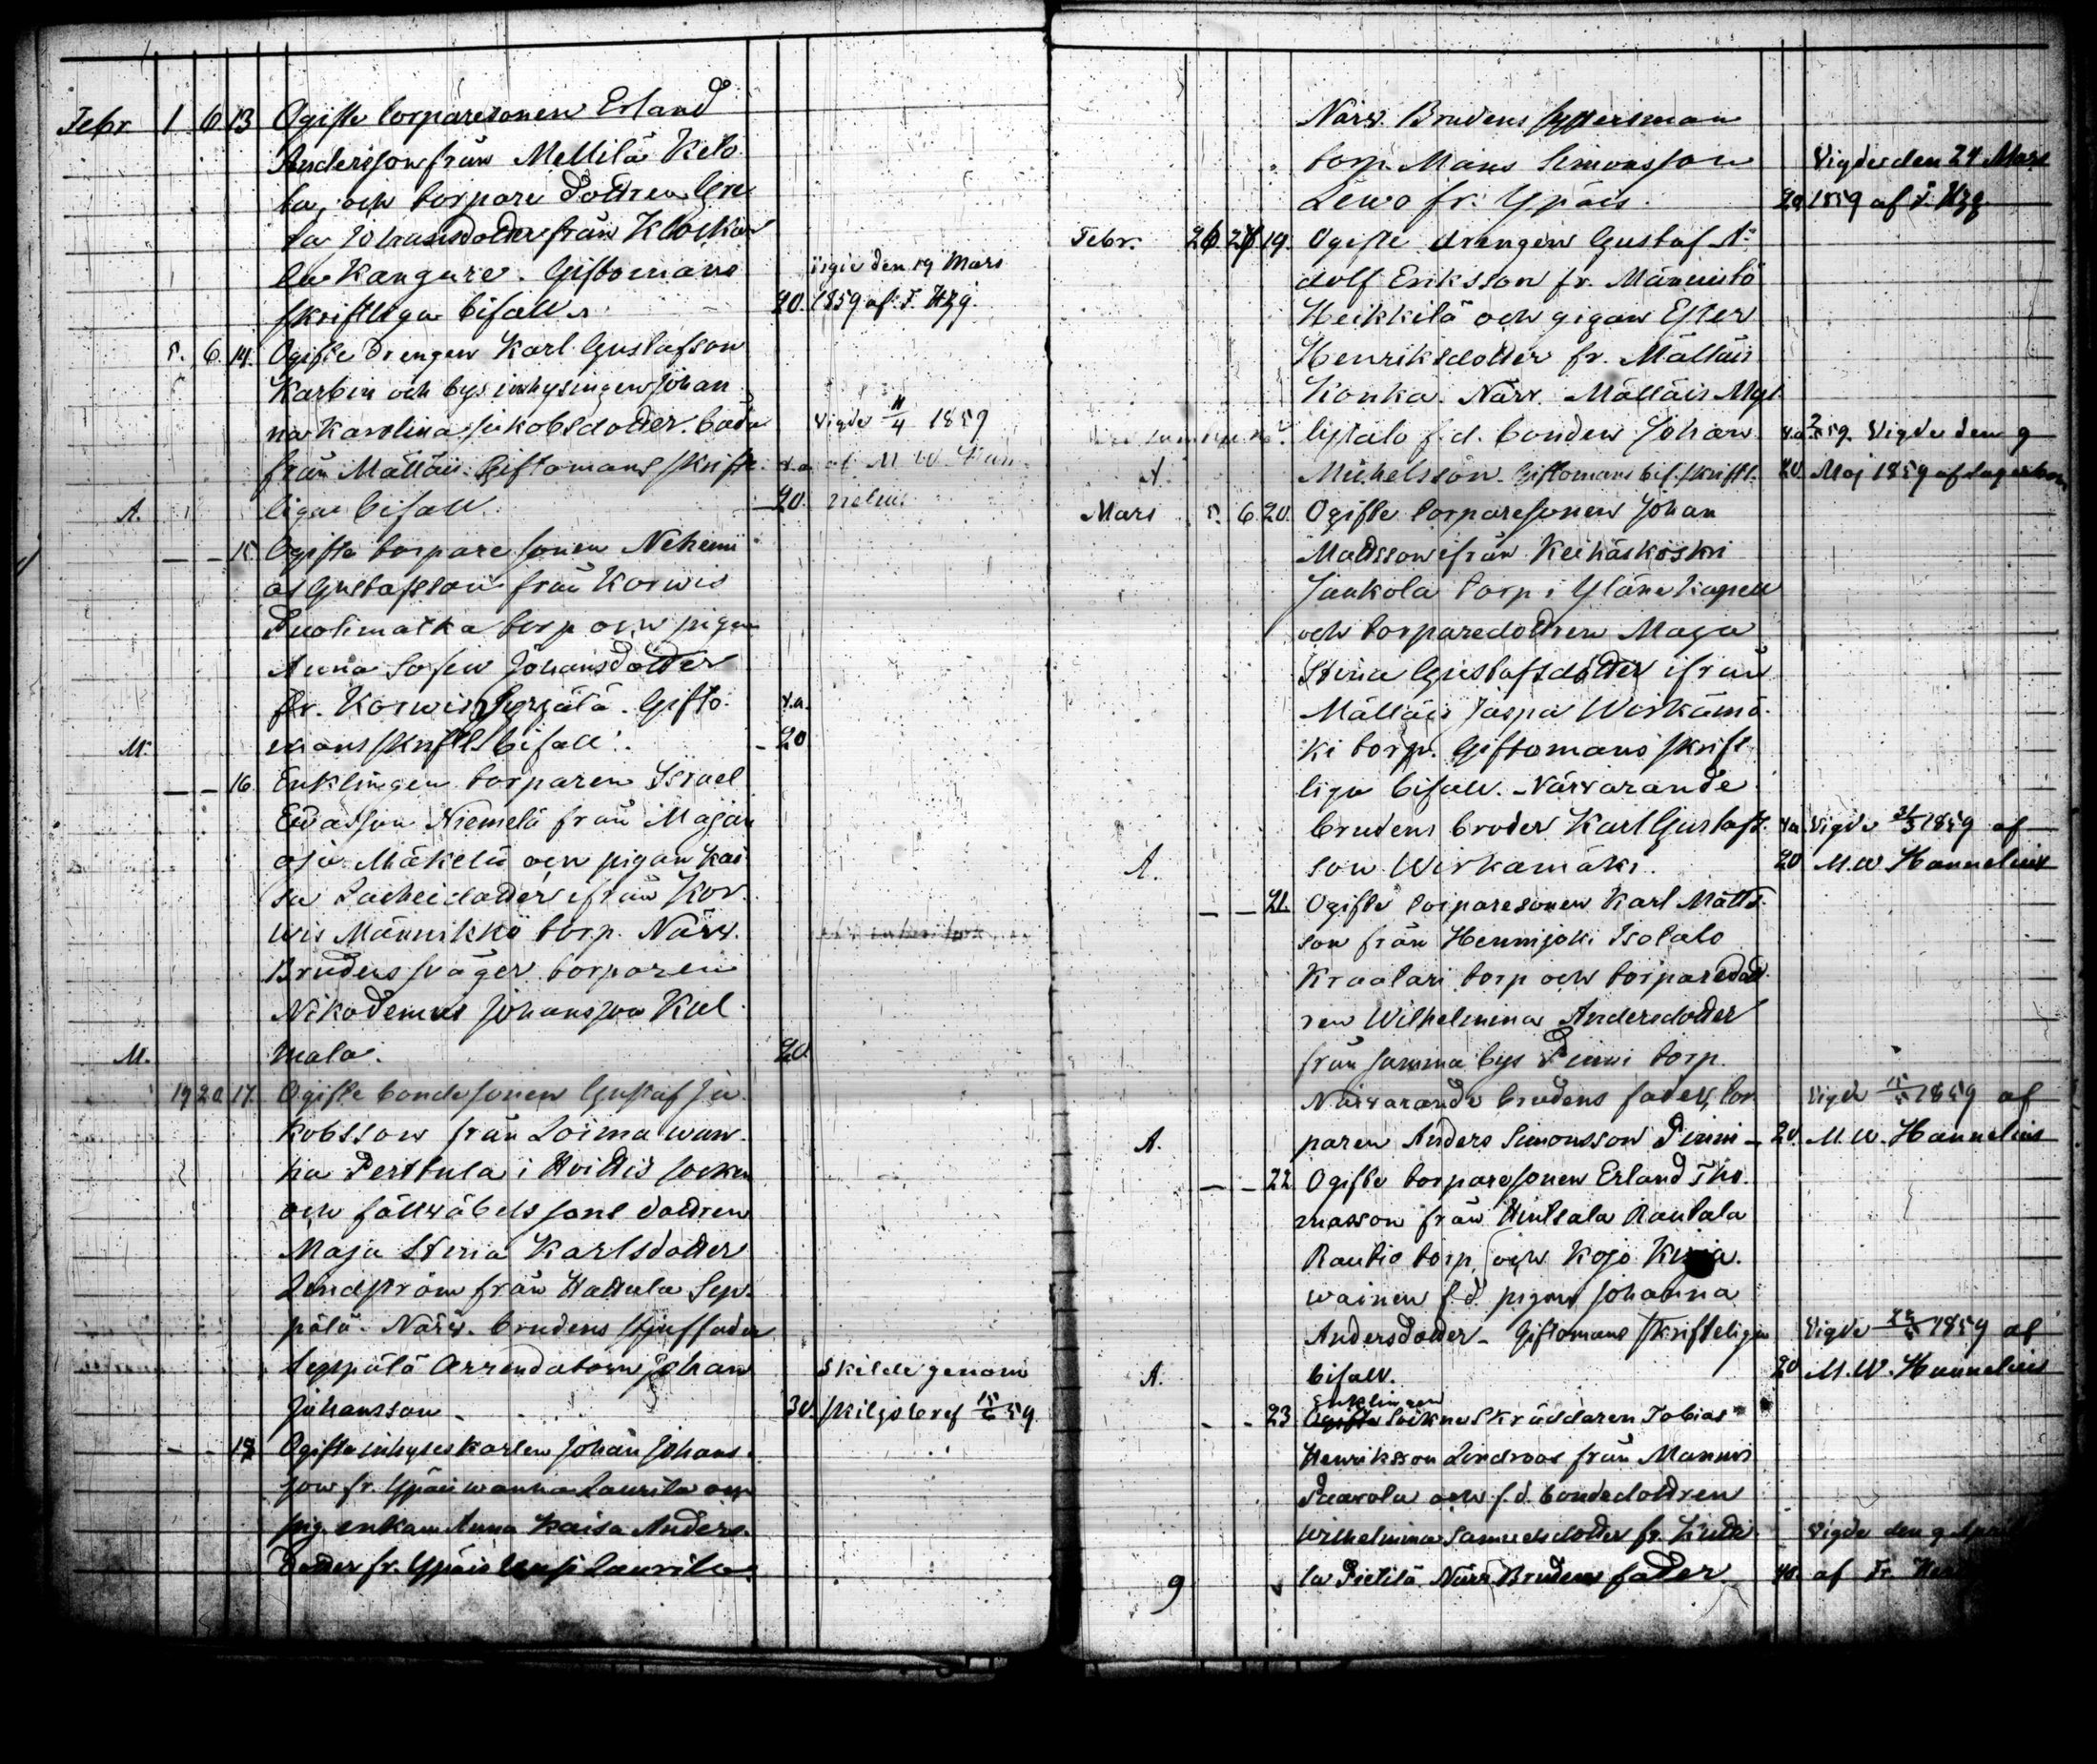 Febr 1 6 13 Ogifte torparesonen Erland
Andersson från Mellilä Keto
la, och torpare dottren Gre
ta Johansdotter från Klocka
la Kangare. Giftomans vigde den 19 Mars
skriftliga bifall. 20. 1859 af F. Hzg.
5. 6. 14. Ogifte drengen Karl Gustafson
Karbin och bys inhysingen Johan
na Karolina Jakobsdotter, båda Vigde 11/4 1859
från Mälläis. Giftomans skrift- v.a. af M W Han
A. liga bifall. 20. nelius.
— — 15. Ogifte torpare sonen Nehemi
as Gustafsson från Korwis
Puolimatka torp och pigan
Anna Sofia Johansdotter
fr. Korwis Pyrjälä. Gifto- v.a.
M. mans skriftl. bifall. - 20
— — 16. Enklingen torparen Israel
Esaiasson Niemelä från Majan
oja Mäkelä och pigan Kai
sa Zacheidotter ifrån Kor
wis Männikkö torp. Närv.
Brudens svåger torparen
Nikodemus Johansson Kul
M. mala. 20.
19 20. 17. Ogifte bondesonen Gustaf Ja
kobsson från Loima wan
ha Perttula i Hvittis socken
och fältväbels sons dottren
Maja Stina Karlsdotter
Lindström från Hattula Sep
pälä. Närv. brudens styffader
Seppälä Arrendatorn Johan Skilde genom
Johansson. 30. skiljobref 15/6 59.
- - 18 Ogifte inhyses karlen Johan Johans-
son fr. Ypäis wanha Laurila och
pig. enkan Anna Kaisa Anders-
dotter fr. Ypäis Uusi Laurila.
Närv. Brudens systersman
torp. Måns Simonsson Vigde den 24 Mars
Lewo fr. Ypäis. 20. 1859 af F. Hzg
Febr. 26 27 19. Ogifte drengen Gustaf A-
dolf Eriksson fr. Männistö
Heikkilä och pigan Ester
Henriksdotter fr. Mälläis
Konka. Närv. Mälläis Myl
lytalo f.d. bonden Johan Vigde den 9
A Michelsson. Giftomans bif. skriftl. 20. Maj 1859 af Lagerbom
Mars 5. 6 20. Ogifte torparesonen Johan
Mattsson ifrån Keihäskoski
Jaakola torp i Yläne Kapell
och torparedottren Maja
Stina Gustafsdotter ifrån
Mälläis Jaspa Wirkamä-
ki torp. Giftomans skrift
liga bifall. Närvarande
brudens broder Karl Gustafs- v.a. Vigde 31/3 1859 af
A. son Wirkamäki. 20 M.W. Hannelius
— — 21. Ogifte torparesonen Karl Matts-
son från Hennijoki Isotalo
Kraatari torp och torparedott-
ren Wilhelmina Andersdotter
från samma bys Pinni torp.
Närvarande brudens fader, tor Vigde 15/5 1859 af
A. paren Anders Simonsson Pinni — 20. M.W. Hannelius
— — 22 Ogifte torparesonen Erland Tho-
masson från Hintsala Rautala
Rautio torp, och Kojo Kuja-
wainen f.d. pigan Johanna
Andersdotter - Giftomans skriftliga Vigde 22/5 1859 af
A. bifall. 20 M.W. Hannelius
Enklingen
- - 23 Ogifte sockne Skräddaren Tobias
Henriksson Lindroos från Mannis
Paavola och f.d. bondedottren
Wilhelmina Samuelsdotter fr. Vigde den 9 April
9 la Pietilä. Närv. Brudens fader. 40. af Fr.